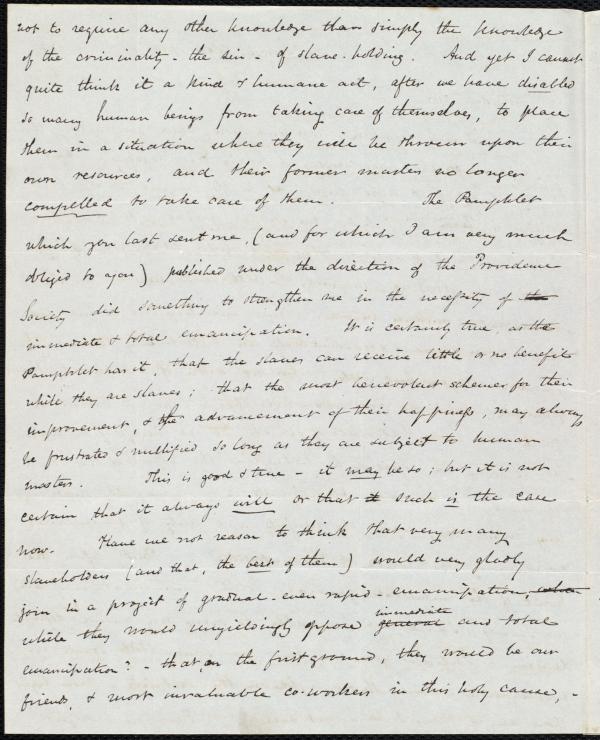 not to require any other knowledge than simply the knowledge
of the criminality - the sin - of slave-holding. And yet I cannot
quite think it a kind & humane act, after we have disabled
so many human beings from taking care of themselves, to place
them in a situation where they will be thrown upon their
own resources, and their former masters no longer
compelled to take care of them. The Pamphlet
which you last sent me, (and for which I am very much
obliged to you) published under the direction of the Providence
Society did something to strengthen me in the necessity of the
immediate & total emancipation. It is certainly true, as the
Pamphlet has it, that the slaves can receive little or no benefit
while they are slaves; that the most benevolent schemes for their
improvement, & the advancement of their happiness, may always
be frustrated & nullified so long as they are subject to human
masters. This is good & true - it may be so; but it is not
certain that it always will or that it such is the case
now. Have we not reason to think that very many
slaveholders (and that, the best of them) would very gladly
join in a project of gradual - even rapid - emancipation,
while they would unyieldingly oppose general immediate and total
emancipation? - that, on the first ground, they would be our
friends, & most invaluable co-workers in this holy cause, -